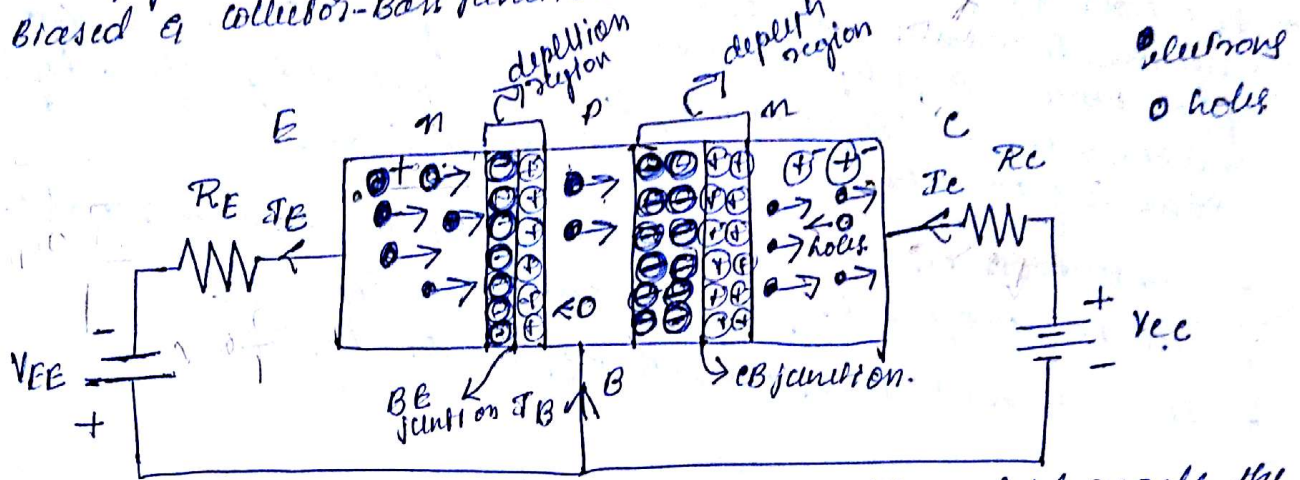 Biased & collector-Base
depletion
region
depleth
region
electrons
o holes
E
n
P
n
C
RE
IE
IC
RC
holes
VEE
-
+
+
VCC
-
BE
junction
IB
B
CB junction.
the